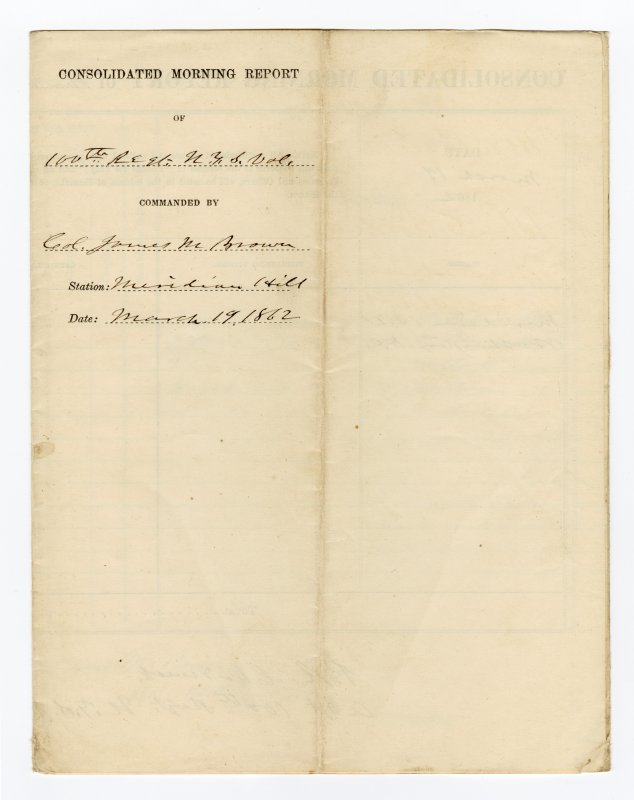 CONSOLIDATED MORNING REPORT
OF
100th Regt. N.Y.S. Vol.
COMMANDED BY
Col. James M Brown
Station: Meridian Hill
Date: March 19, 1862